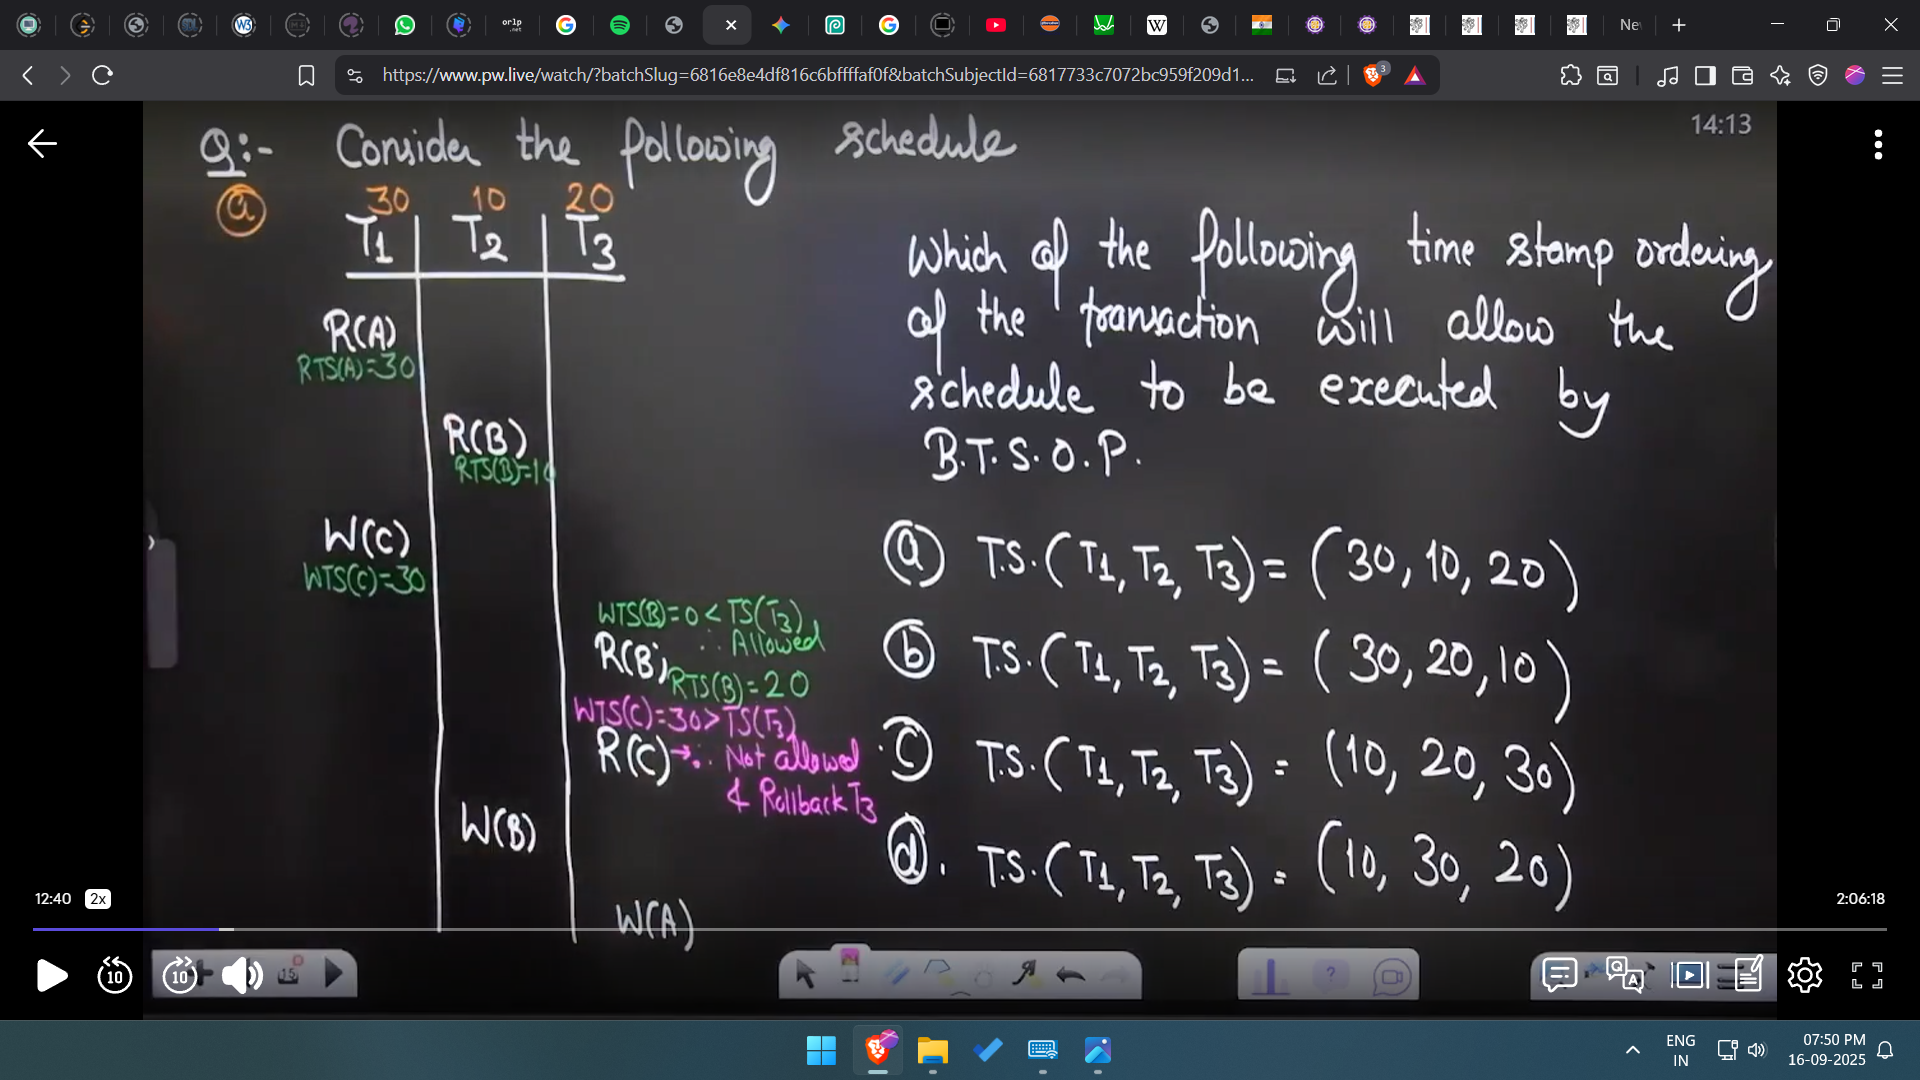 New
https://www.pw.live/watch/?batchSlug=6816e8e4df816c6bffffaf0f&batchSubjectId=6817733c7072bc959f209d1...
3
14:13
Q:- Consider the following schedule
a
30 10 20
T1 T2 T3
R(A)
RTS(A)=30
R(B)
RTS(B)=10
W(C)
WTS(C)=30
WTS(B)=0 < TS(T3)
∴ Allowed
R(B)
RTS(B)=20
WTS(C)=30 > TS(T3)
R(C) → ∴ Not allowed
& Rollback T3
W(B)
W(A)
Which of the following time stamp ordering
of the transaction will allow the
schedule to be executed by
B.T.S.O.P.
a T.S.(T1, T2, T3) = (30, 10, 20)
b T.S.(T1, T2, T3) = (30, 20, 10)
c T.S.(T1, T2, T3) = (10, 20, 30)
d. T.S.(T1, T2, T3) = (10, 30, 20)
12:40 2x
2:06:18
10 10
15
ENG
IN
07:50 PM
16-09-2025